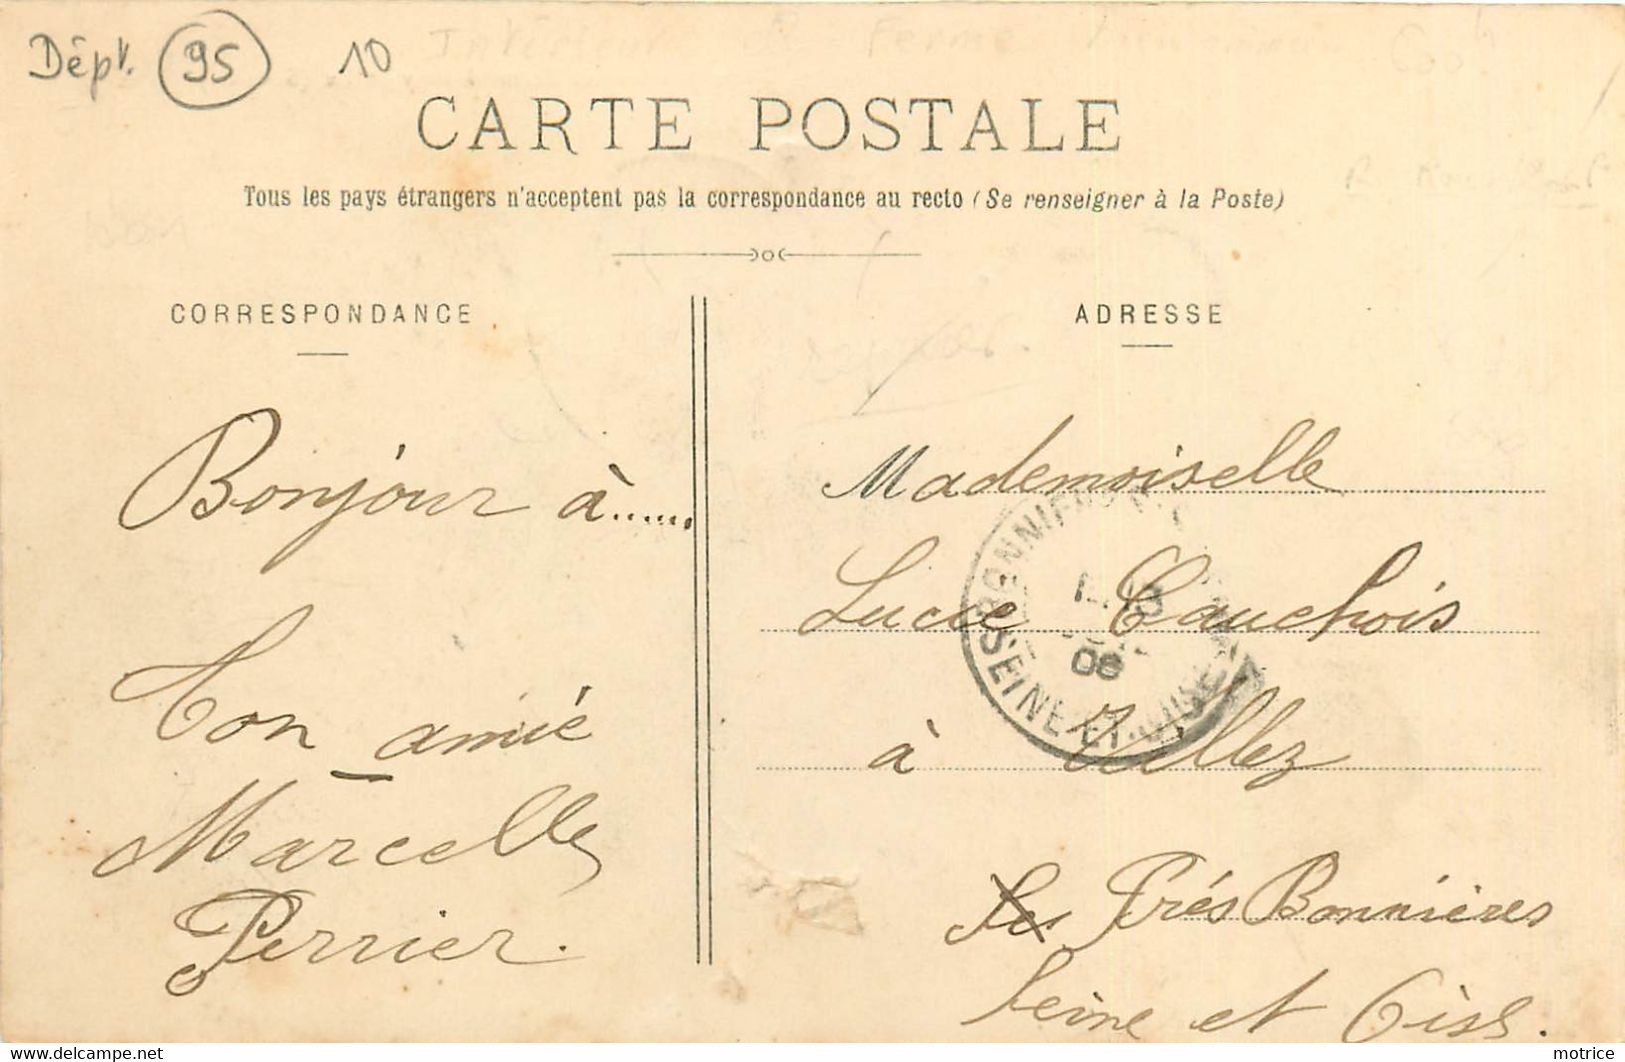 Dépt. 95 10
CARTE POSTALE
Tous les pays étrangers n'acceptent pas la correspondance au recto (Se renseigner à la Poste)
CORRESPONDANCE
Bonjour à......
Ton amié
Marcelle
Perrier.
ADRESSE
Mademoiselle
Lucie Cauchois
à Villez
Prés Bonnières
Seine et Oise.
BONNIE
SEINE ET OISE
08
motrice